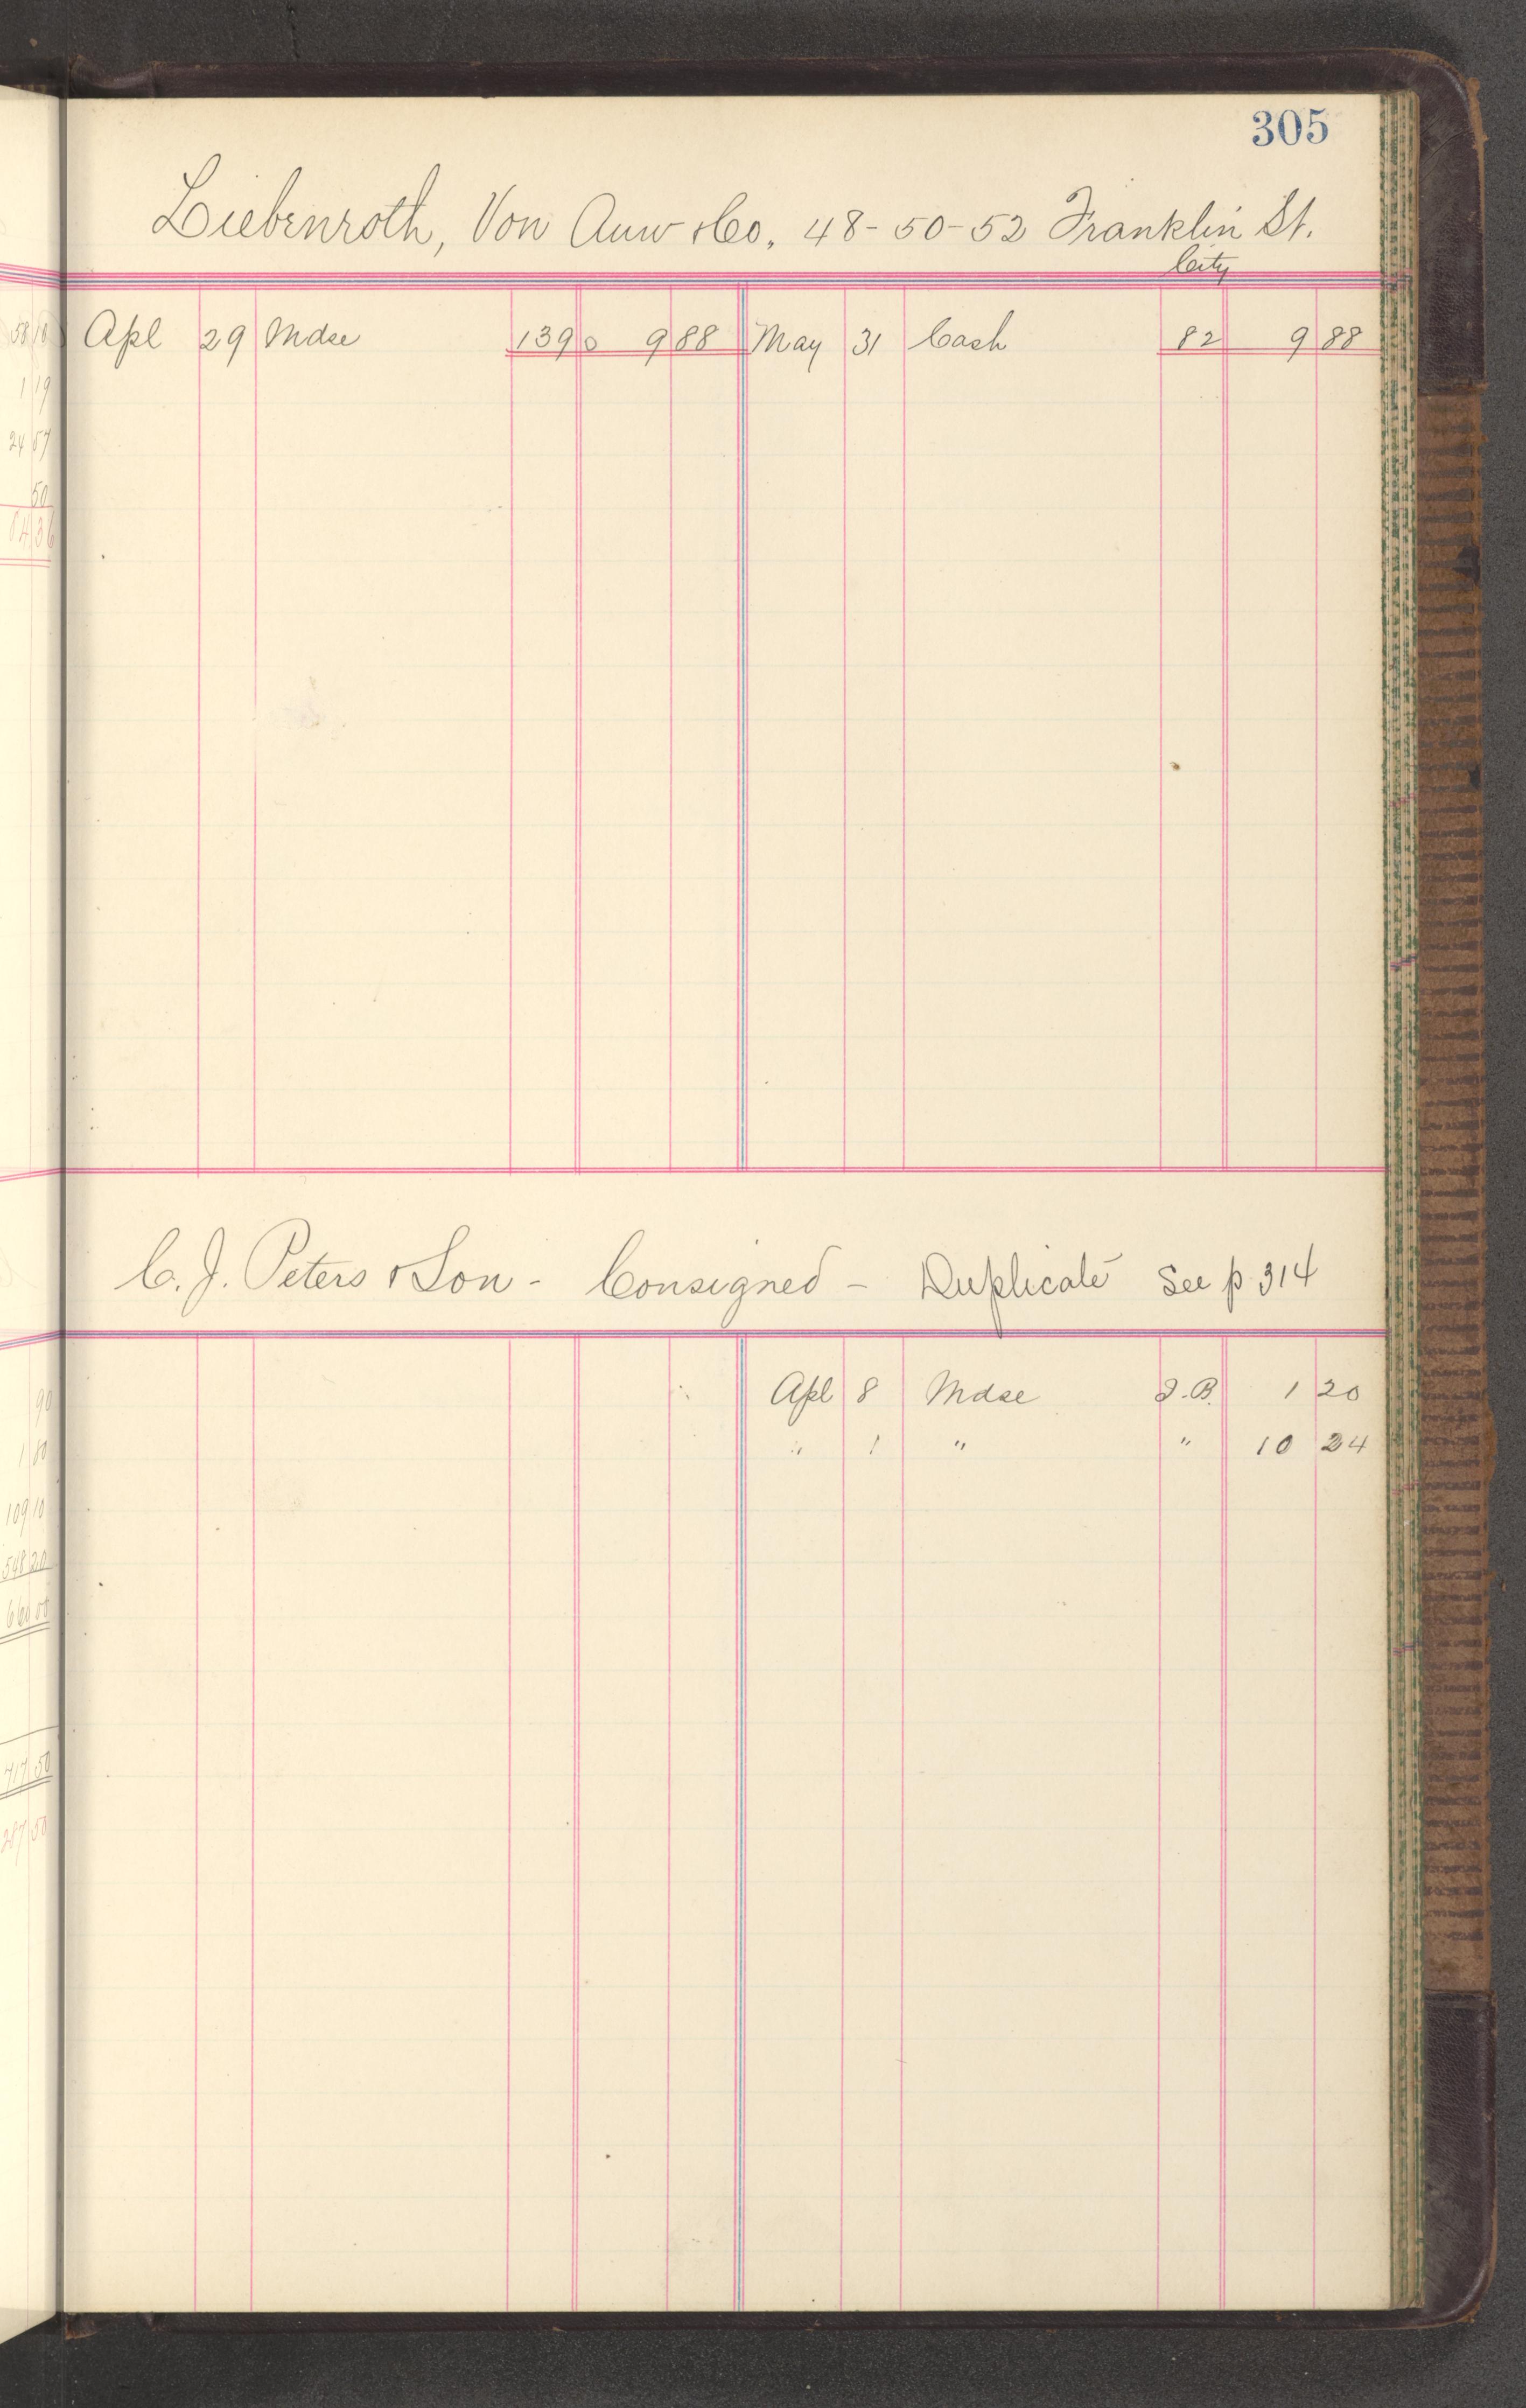 305
Liebenroth, Von Auw & Co. 48-50-52 Franklin St.
City
Apl 29 Mdse 1390 9 88 May 31 Cash 82 9 88
C. J. Peters & Son - Consigned - Duplicate See p 314
Apl 8 Mdse I.B. 1 20
" 1 " " 10 24
58 10
1 19
24 57
50
84 36
90
1 80
109 10
548 20
660 00
717 50
287 50